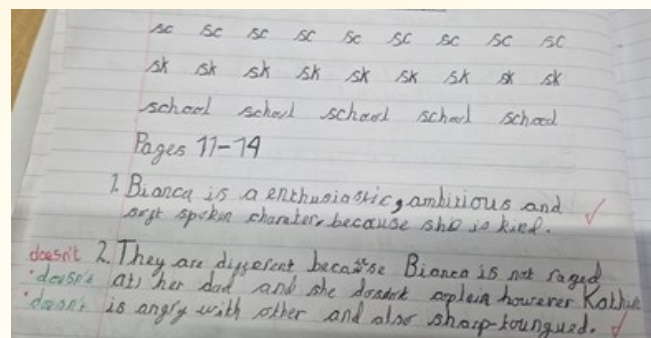 sc sc sc sc sc sc sc sc sc
sk sk sk sk sk sk sk sk sk
school school school school school
Pages 11-14
1. Bianca is a enthusiastic, ambitious and
soft spoken charater, because she is kind.
doesn't 2. They are different because Bianca is not raged
doesn't at, her dad and she dosdnt however
doesn't is angry with other and also sharp-toungued.